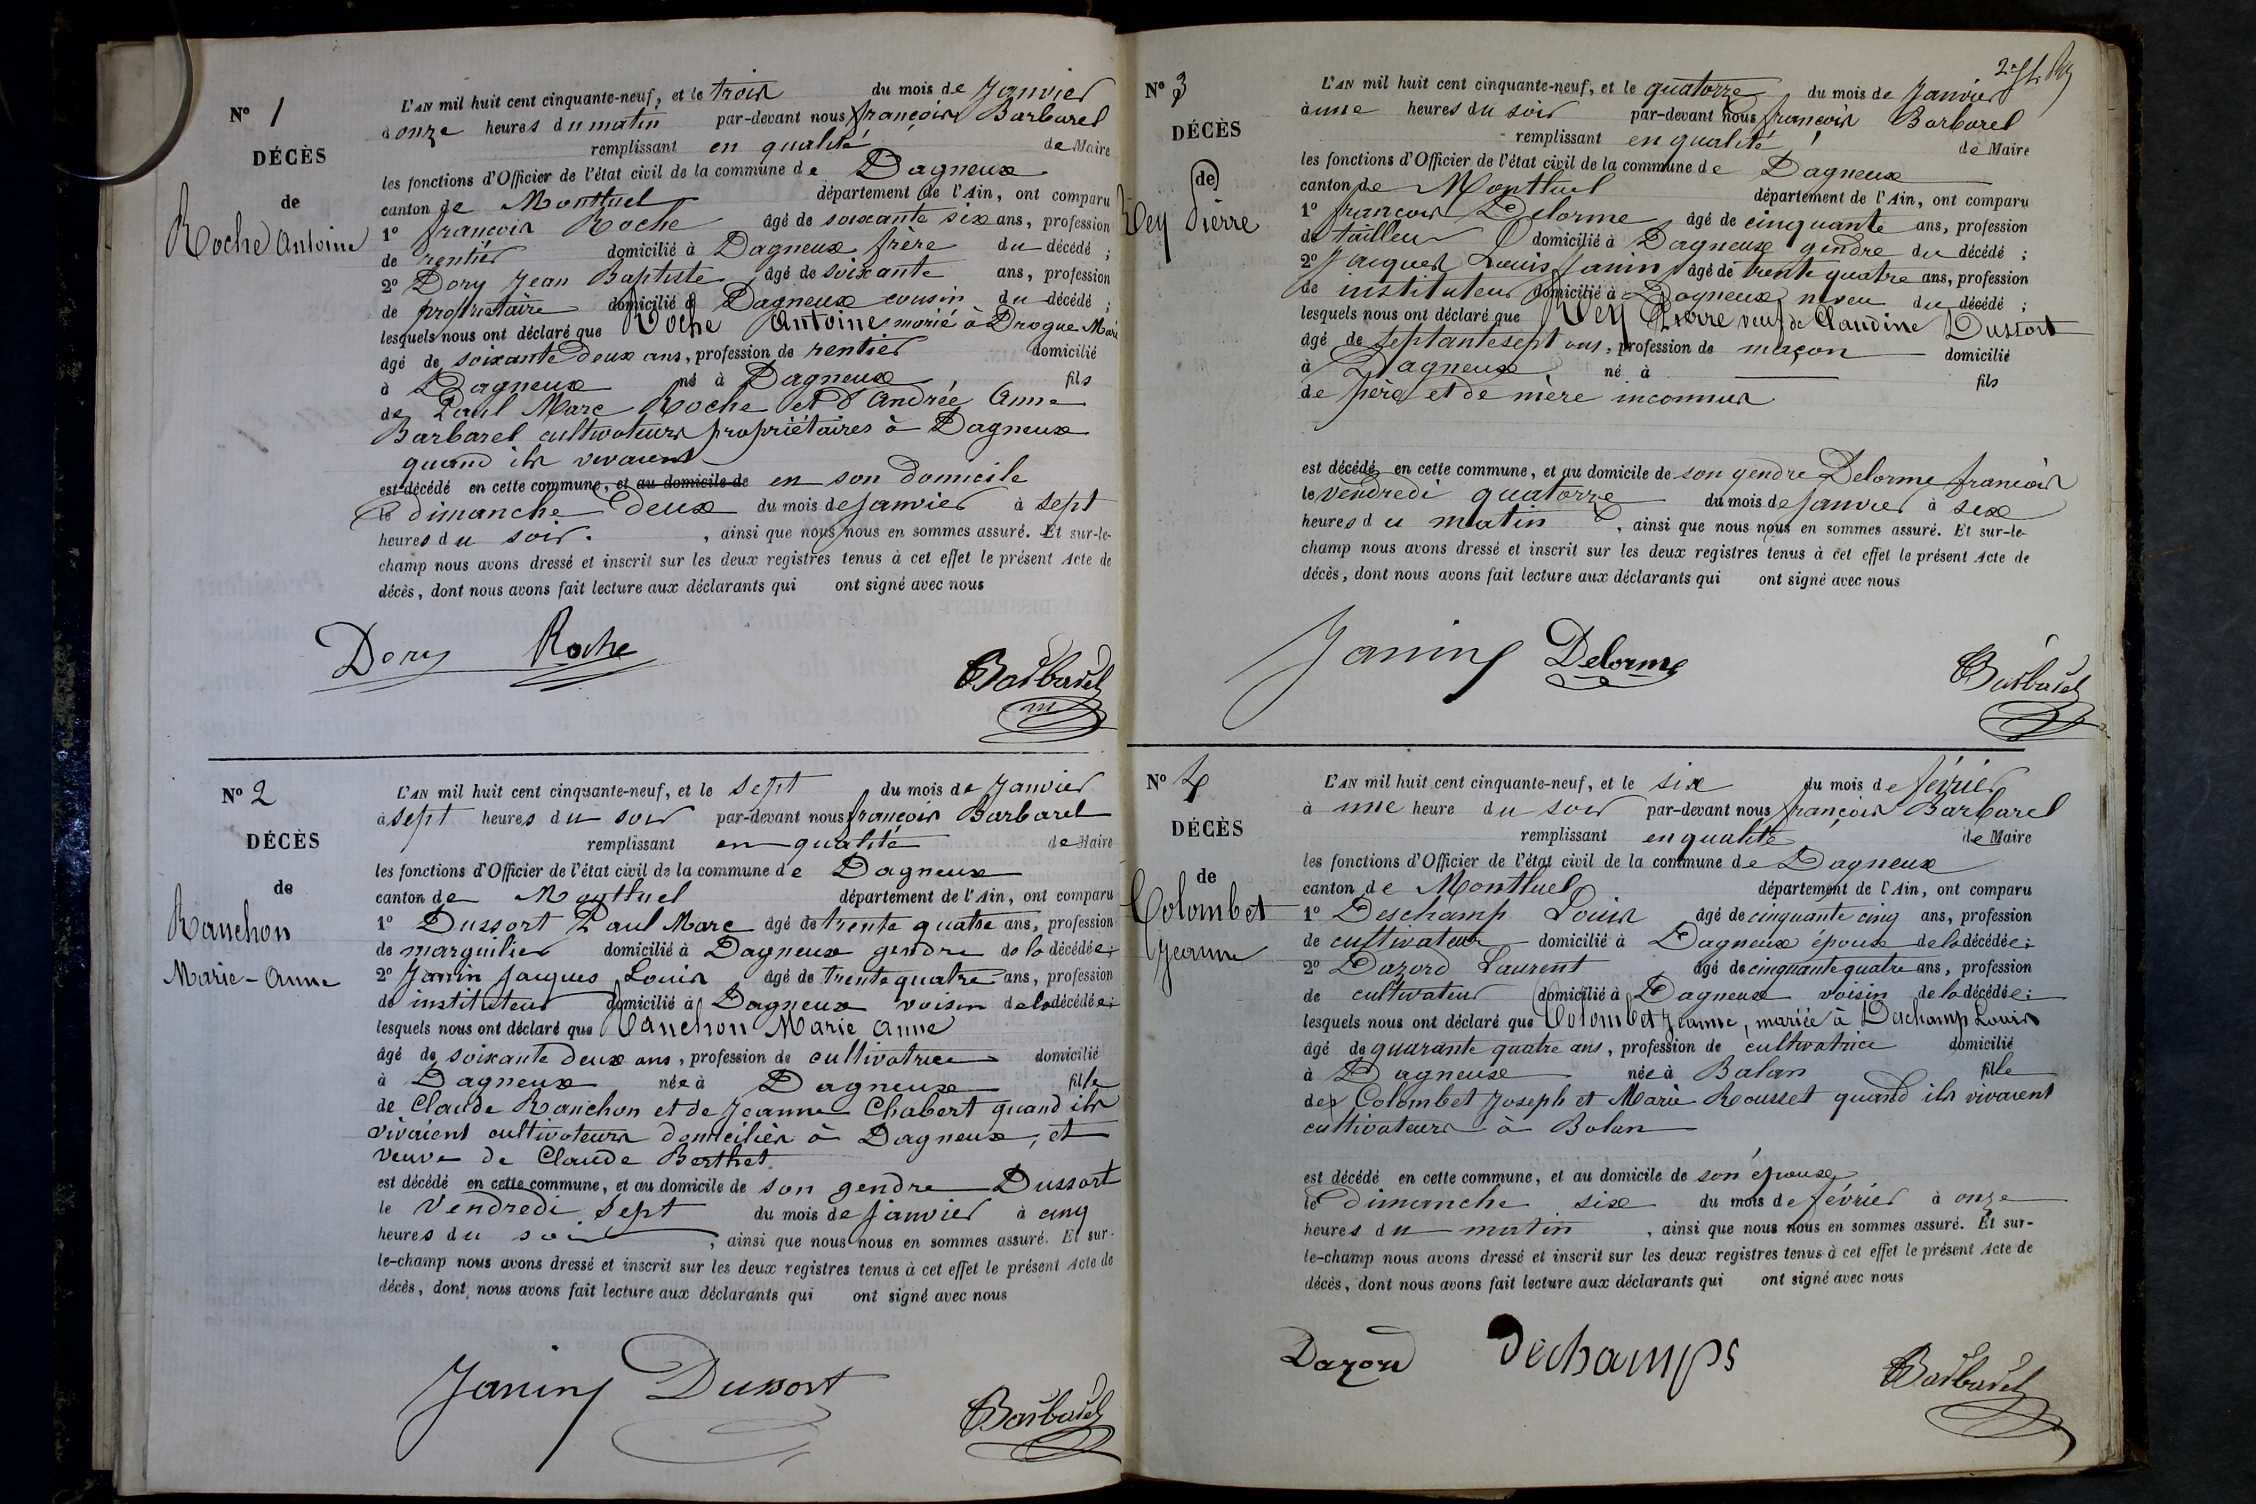 N° 1
DÉCÈS
de
Roche Antoine
L'AN mil huit cent cinquante-neuf, et le trois du mois de Janvier
à onze heures du matin par-devant nous françois Barbarel
remplissant en qualité de Maire
les fonctions d'Officier de l'état civil de la commune de Dagneux
canton de Montluel département de l'Ain, ont comparu
1° françois Roche âgé de soixante six ans, profession
de rentier domicilié à Dagneux frère du décédé ;
2° Dory Jean Baptiste âgé de soixante ans, profession
de propriétaire domicilié à Dagneux cousin du décédé ;
lesquels nous ont déclaré que Roche Antoine marié à Drogue Marie
âgé de soixante deux ans, profession de rentier domicilié
à Dagneux né à Dagneux fils
de Paul Marc Roche et d'Andrée Anne
Barbarel cultivateurs propriétaires à Dagneux
quand ils vivaient
est décédé en cette commune, et au domicile de en son domicile
le dimanche deux du mois de Janvier à sept
heures du soir. , ainsi que nous nous en sommes assuré. Et sur-le-
champ nous avons dressé et inscrit sur les deux registres tenus à cet effet le présent Acte de
décès, dont nous avons fait lecture aux déclarants qui ont signé avec nous
Dory Roche
Barbarel
N° 2
DÉCÈS
de
Ranchon
Marie-Anne
L'AN mil huit cent cinquante-neuf, et le sept du mois de Janvier
à sept heures du soir par-devant nous françois Barbarel
remplissant en qualité de Maire
les fonctions d'Officier de l'état civil de la commune de Dagneux
canton de Montluel département de l'Ain, ont comparu
1° Dussort Paul Marc âgé de trente quatre ans, profession
de marguilier domicilié à Dagneux gendre de la décédée ;
2° Janin Jacques Louis âgé de trente quatre ans, profession
de instituteur domicilié à Dagneux voisin de la décédée ;
lesquels nous ont déclaré que Ranchon Marie Anne
âgé de soixante deux ans, profession de cultivatrice domicilié
à Dagneux née à Dagneux fille
de Claude Ranchon et de Jeanne Chabert quand ils
vivaient cultivateurs domiciliés à Dagneux, et
veuve de Claude Berthet.
est décédé en cette commune, et au domicile de son gendre Dussort
le Vendredi sept du mois de Janvier à cinq
heures du soir , ainsi que nous nous en sommes assuré. Et sur-
le-champ nous avons dressé et inscrit sur les deux registres tenus à cet effet le présent Acte de
décès, dont nous avons fait lecture aux déclarants qui ont signé avec nous
Janin Dussort
Barbarel
N° 3
DÉCÈS
de
Rey Pierre
L'AN mil huit cent cinquante-neuf, et le quatorze du mois de Janvier
à une heures du soir par-devant nous françois Barbarel
remplissant en qualité de Maire
les fonctions d'Officier de l'état civil de la commune de Dagneux
canton de Montluel département de l'Ain, ont comparu
1° françois Delorme âgé de cinquante ans, profession
de tailleur domicilié à Dagneux gendre du décédé ;
2° Jacques Louis Janin âgé de trente quatre ans, profession
de instituteur domicilié à Dagneux neveu du décédé ;
lesquels nous ont déclaré que Rey Pierre veuf de Claudine Dussort
âgé de septante sept ans, profession de maçon domicilié
à Dagneux né à fils
de père et de mère inconnus
est décédé en cette commune, et au domicile de son gendre Delorme françois
le vendredi quatorze du mois de Janvier à six
heures du matin , ainsi que nous nous en sommes assuré. Et sur-le-
champ nous avons dressé et inscrit sur les deux registres tenus à cet effet le présent Acte de
décès, dont nous avons fait lecture aux déclarants qui ont signé avec nous
Janin Delorme
Barbarel
N° 4
DÉCÈS
de
Colombet
Jeanne
L'AN mil huit cent cinquante-neuf, et le six du mois de février
à une heure du soir par-devant nous françois Barbarel
remplissant en qualité de Maire
les fonctions d'Officier de l'état civil de la commune de Dagneux
canton de Montluel département de l'Ain, ont comparu
1° Deschamp Louis âgé de cinquante cinq ans, profession
de cultivateur domicilié à Dagneux époux de la décédée ;
2° Dazord Laurent âgé de cinquante quatre ans, profession
de cultivateur domicilié à Dagneux voisin de la décédée ;
lesquels nous ont déclaré que Colombet Jeanne, mariée à Deschamp Louis
âgé de quarante quatre ans, profession de cultivatrice domicilié
à Dagneux née à Balan fille
de Colombet Joseph et Marie Rousset quand ils vivaient
cultivateurs à Balan
est décédé en cette commune, et au domicile de son époux
le Dimanche six du mois de février à onze
heures du matin , ainsi que nous nous en sommes assuré. Et sur-
le-champ nous avons dressé et inscrit sur les deux registres tenus à cet effet le présent Acte de
décès, dont nous avons fait lecture aux déclarants qui ont signé avec nous
Dazord Dechamps
Barbarel